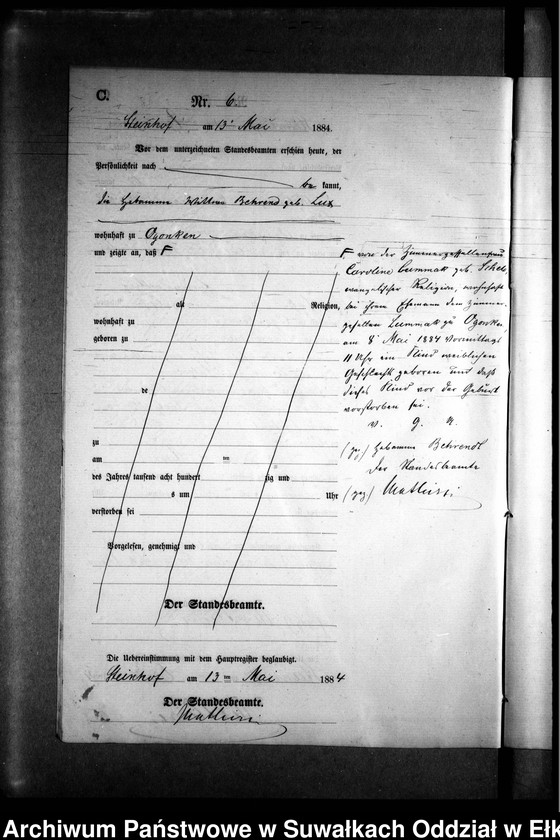 C.
Nr. 6.
Steinhof am 13' Mai 1884.
Vor dem unterzeichneten Standesbeamten erschien heute, der
Persönlichkeit nach
be kannt,
die Hebamme Wittwe Behrend geb. Lux
wohnhaft zu Ogonken
und zeigte an, daß F
alt Religion,
wohnhaft zu
geboren zu
de
zu
am ten
des Jahres tausend acht hundert zig und
s um Uhr
verstorben sei
Vorgelesen, genehmigt und
Der Standesbeamte.
Die Uebereinstimmung mit dem Hauptregister beglaubigt.
Steinhof am 13 ten Mai 1884
Der Standesbeamte.
F von der Zimmergesellenfrau
Caroline geb.
evangelischer Religion, wohnhaft
bei ihrem Ehemann dem Zimmer-
gesellen zu Ogonken,
am 8' Mai 1884 Vormittags
11 Uhr ein Kind weiblichen
Geschlechts geboren und daß
dieses Kind vor der Geburt
verstorben sei.
v. g. u.
(gez) Hebamme Behrendt
Der Standesbeamte
(gez)
Archiwum Państwowe w Suwałkach Oddział w Ełk